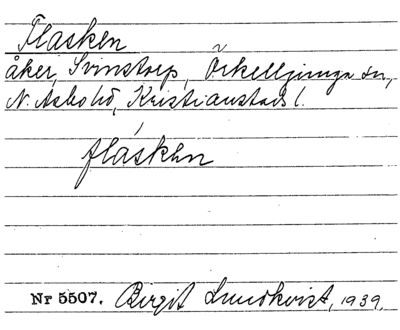 Flasken
åker, Svinstorp, Örkelljunga sn,
N. Åsbo hd, Kristianstads l.
flásken
Nr 5507. Birgit Lundkvist, 1939.